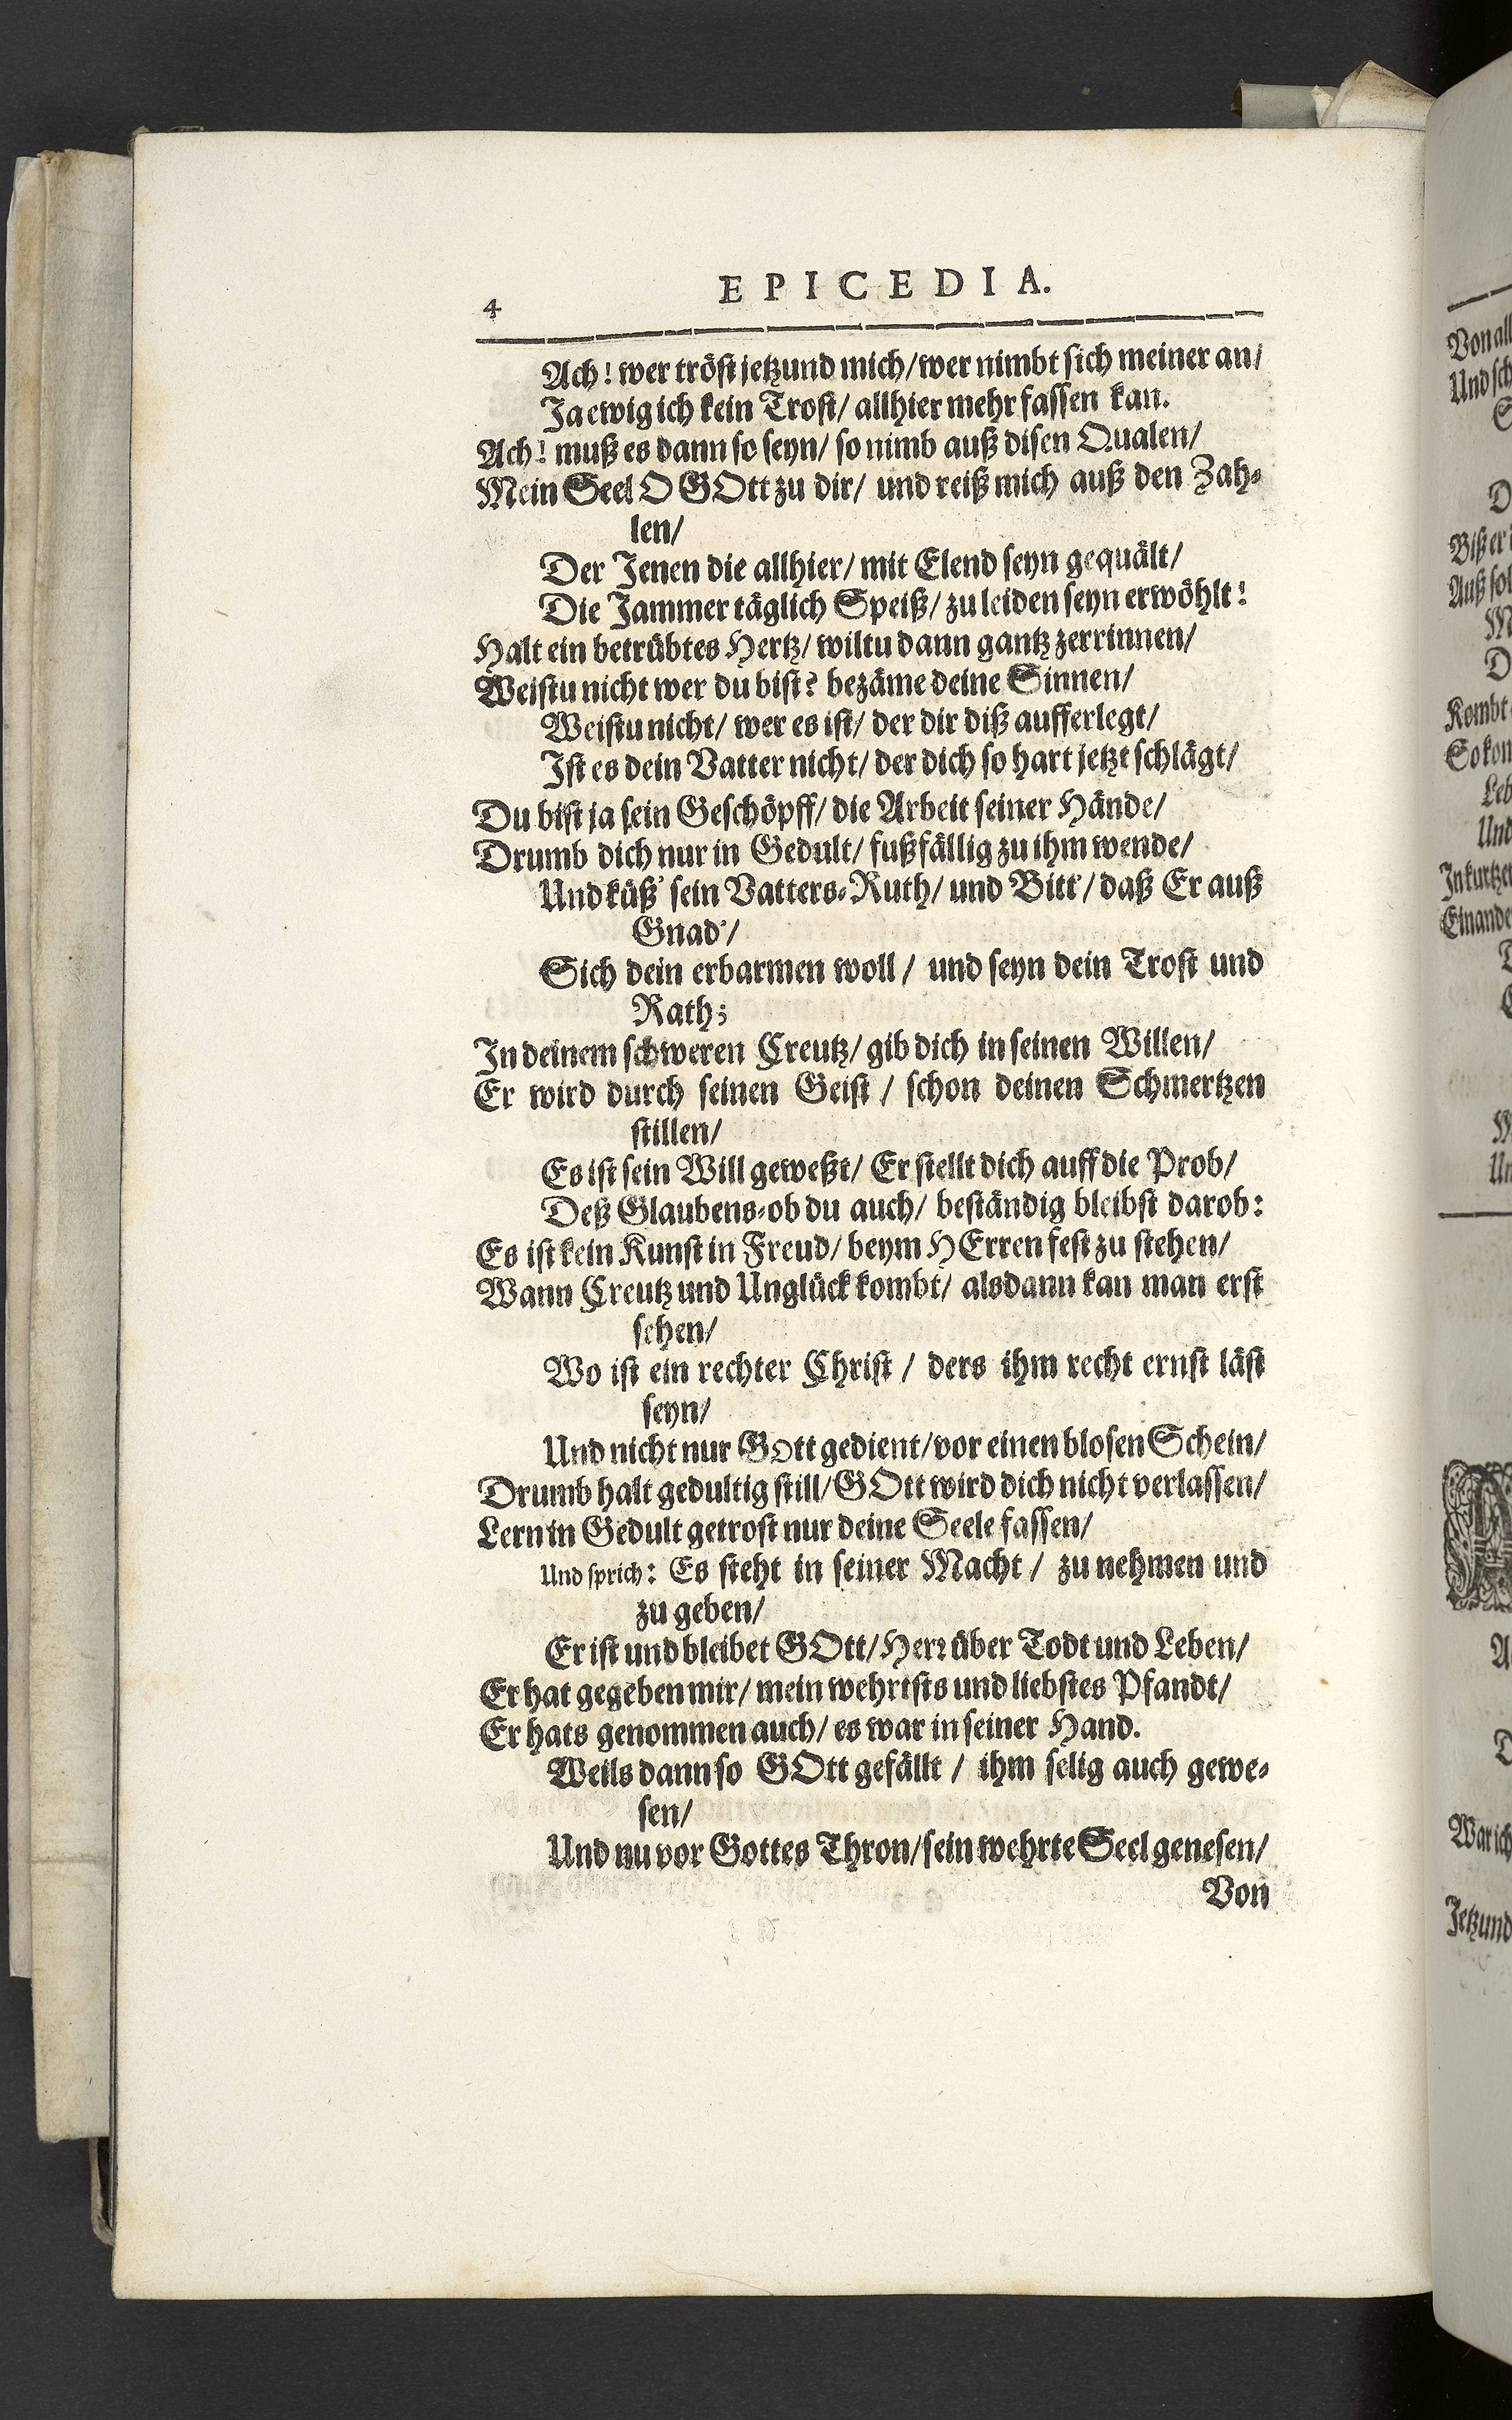 4
EPICEDIA.
Ach! wer tröst jetzund mich/ wer nimbt sich meiner an/
Ja ewig ich kein Trost/ allhier mehr fassen kan.
Ach! muß es dann so seyn/ so nimb auß disen Qualen/
Mein Seel O GOtt zu dir/ und reiß mich auß den Zah-
len/
Der Jenen die allhier/ mit Elend seyn gequält/
Die Jammer täglich Speiß/ zu leiden seyn erwöhlt!
Halt ein betrübtes Hertz/ wiltu dann gantz zerrinnen/
Weistu nicht wer du bist? bezäme deine Sinnen/
Weistu nicht/ wer es ist/ der dir diß aufferlegt/
Ist es dein Vatter nicht/ der dich so hart jetzt schlägt/
Du bist ja sein Geschöpff/ die Arbeit seiner Hände/
Drumb dich nur in Gedult/ fußfällig zu ihm wende/
Und küß' sein Vatters-Ruth/ und Bitt'/ daß Er auß
Gnad'/
Sich dein erbarmen woll/ und seyn dein Trost und
Rath;
In deinem schweren Creutz/ gib dich in seinen Willen/
Er wird durch seinen Geist/ schon deinen Schmertzen
stillen/
Es ist sein Will geweßt/ Er stellt dich auff die Prob/
Deß Glaubens-ob du auch/ beständig bleibst darob:
Es ist kein Kunst in Freud/ beym HErren fest zu stehen/
Wann Creutz und Unglück kombt/ alsdann kan man erst
sehen/
Wo ist ein rechter Christ/ ders ihm recht ernst läst
seyn/
Und nicht nur GOtt gedient/ vor einen blosen Schein/
Drumb halt gedultig still/ GOtt wird dich nicht verlassen/
Lern in Gedult getrost nur deine Seele fassen/
Und sprich: Es steht in seiner Macht/ zu nehmen und
zu geben/
Er ist und bleibet GOtt/ Herr über Todt und Leben/
Er hat gegeben mir/ mein wehrtsts und liebstes Pfandt/
Er hats genommen auch/ es war in seiner Hand.
Weils dann so GOtt gefällt/ ihm selig auch gewe-
sen/
Und nu vor Gottes Thron/ sein wehrte Seel genesen/
Von
Von all
Und sch
Biß er
Auß sol
Kombt
So kon
Leb
Und
In kurtzer
Einande
War ich
Jetzund